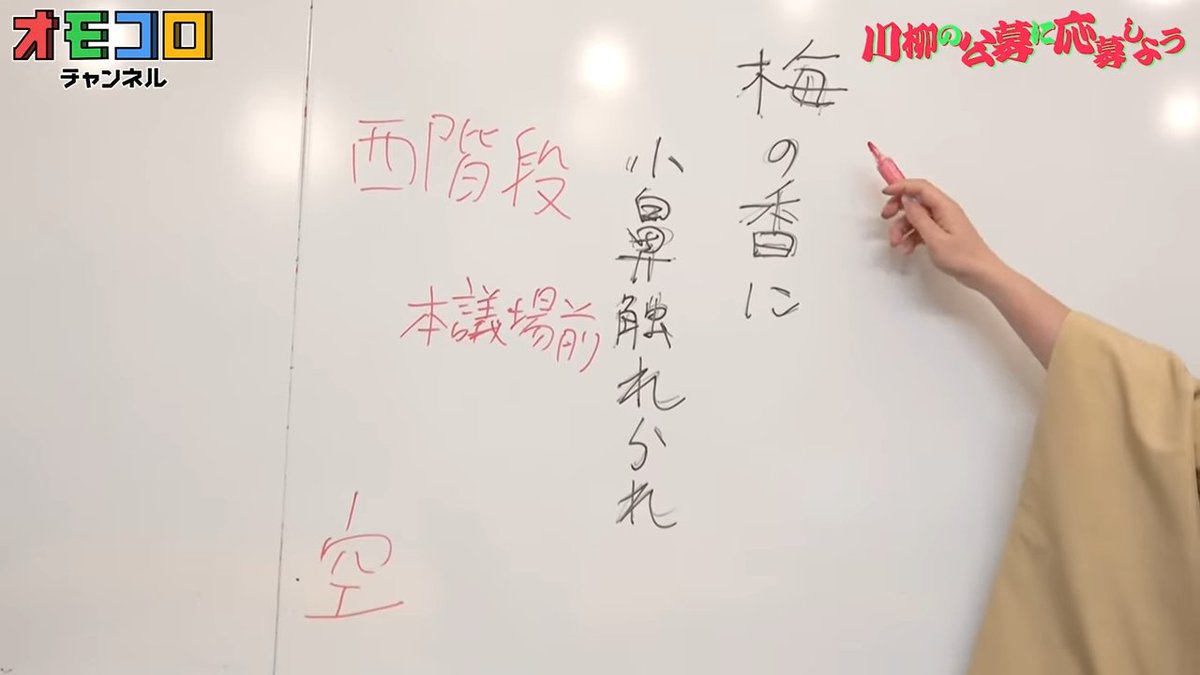 オモコロ
チャンネル
川柳の公募に応募しよう
梅の香に
小鼻触れかれ
西階段
本議場前
空